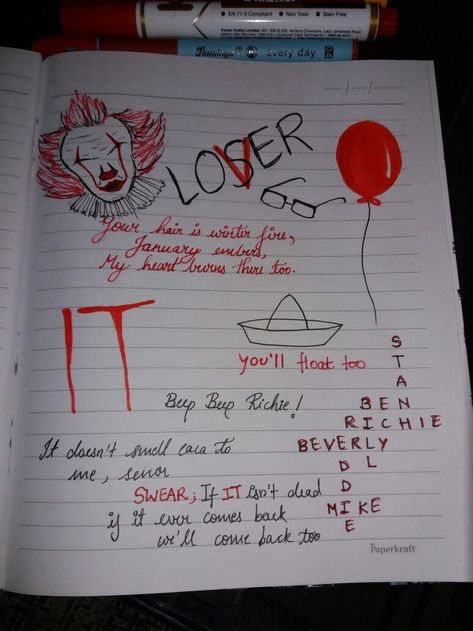 EN 71-3 Compliant • Non Toxic • Stain Free
every day
LOSVER
Your hair is winter fire,
January embers,
My heart burns there too.
IT
you'll float too
Beep Beep Richie!
S
T
A
BEN
RICHIE
BEVERLY
D L
D
MIKE
E
It doesn't smell caca to
me, senor
SWEAR; If IT isn't dead
if it ever comes back
we'll come back too
Paperkraft